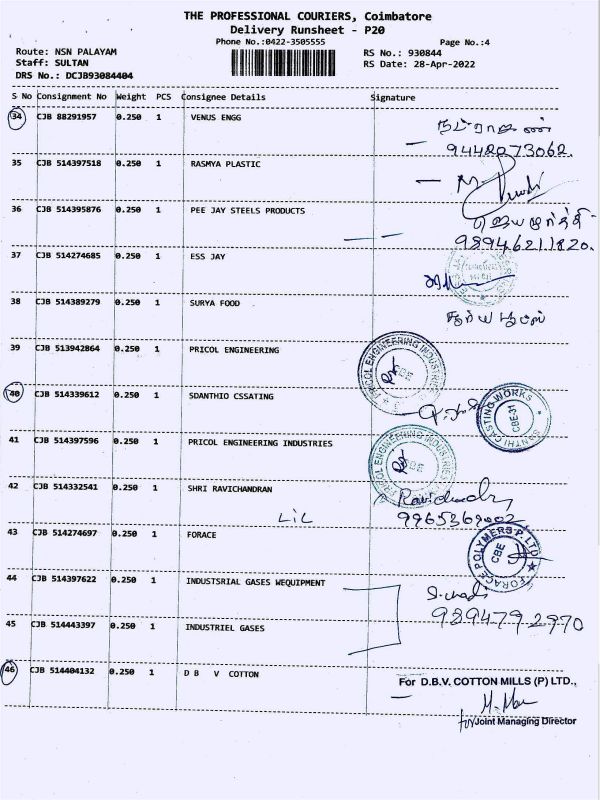 THE PROFESSIONAL COURIERS, Coimbatore
Delivery Runsheet - P20
Phone No.:0422-3505555
Page No.:4
Route: NSN PALAYAM
RS No.: 930844
Staff: SULTAN
RS Date: 28-Apr-2022
DRS No.: DCJB93084404
S No Consignment No Weight PCS Consignee Details Signature
34 CJB 88291957 0.250 1 VENUS ENGG
நடராஜன்
9442073062.
35 CJB 514397518 0.250 1 RASMYA PLASTIC
36 CJB 514395876 0.250 1 PEE JAY STEELS PRODUCTS
ஜெயமூர்த்தி
98946211820.
37 CJB 514274685 0.250 1 ESS JAY
38 CJB 514389279 0.250 1 SURYA FOOD
39 CJB 513942864 0.250 1 PRICOL ENGINEERING
PRICOL ENGINEERING INDUSTRIES
CBE
40 CJB 514339612 0.250 1 SDANTHIO CSSATING
SANTHI CASTING WORKS
CBE-31
41 CJB 514397596 0.250 1 PRICOL ENGINEERING INDUSTRIES
PRICOL ENGINEERING INDUSTRIES
CBE
42 CJB 514332541 0.250 1 SHRI RAVICHANDRAN
Ravichandran
9965369002
LIL
43 CJB 514274697 0.250 1 FORACE
FORACE POLYMERS P. LTD
CBE
44 CJB 514397622 0.250 1 INDUSTSRIAL GASES WEQUIPMENT
9894792970
45 CJB 514443397 0.250 1 INDUSTRIEL GASES
46 CJB 514404132 0.250 1 D B V COTTON
For D.B.V. COTTON MILLS (P) LTD.,
for Joint Managing Director